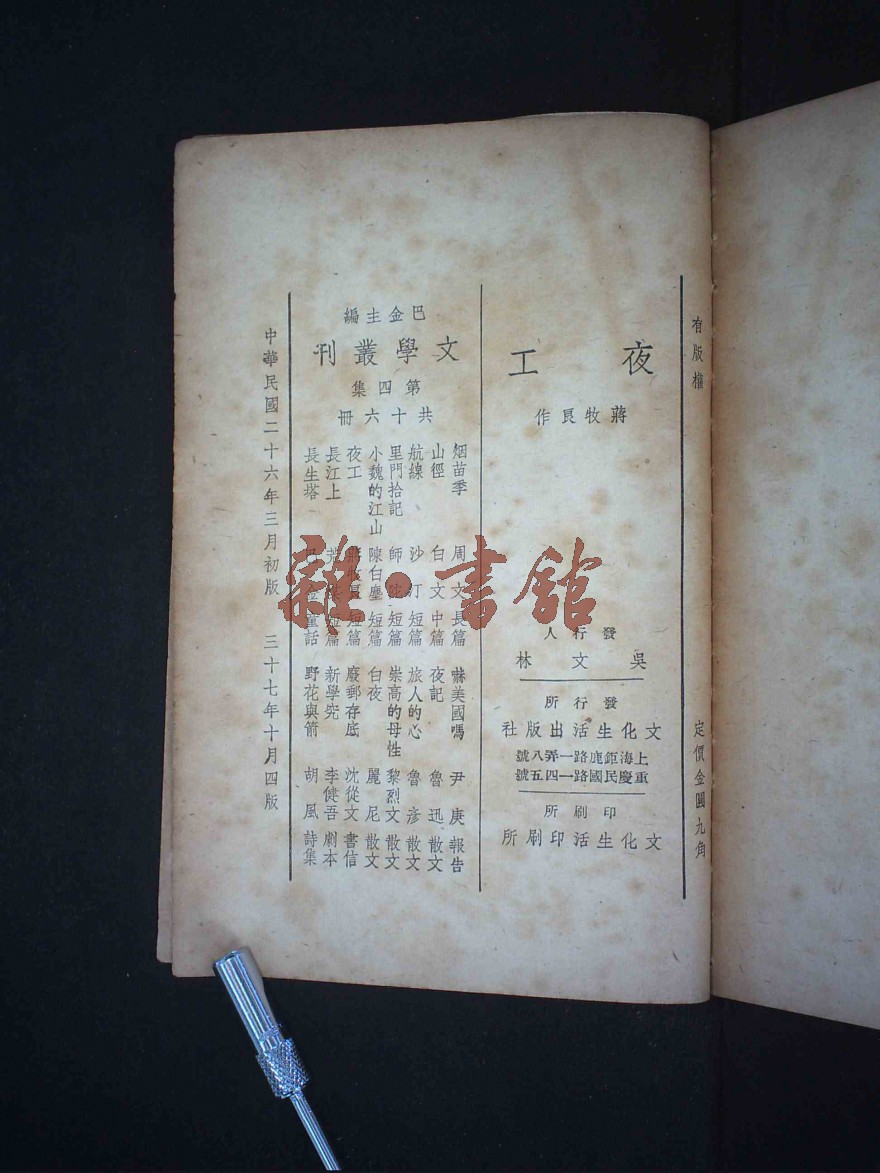 有版權
定價金圓九角
夜工
蔣牧良作
發行人
吳文林
發行所
文化生活出版社
上海鉅鹿路一弄八號
重慶民國路一四五號
印刷所
文化生活印刷所
巴金主編
文學叢刊
第四集
共十六冊
烟苗季 周文 長篇
山徑 白文 中篇
航線 沙汀 短篇
里門拾記 師陀 短篇
小魏的江山 陳白塵 短篇
夜工 蔣牧良 短篇
長江上 短篇
長生塔 童話
嚇美國嗎 尹庚 報告
夜記 魯迅 散文
旅人的心 魯彥 散文
崇高的母性 黎烈文 散文
白夜 麗尼 散文
廢郵存底 沈從文 書信
新學究 李健吾 劇本
野花與箭 胡風 詩集
中華民國二十六年三月初版 三十七年十月四版
雜·書館